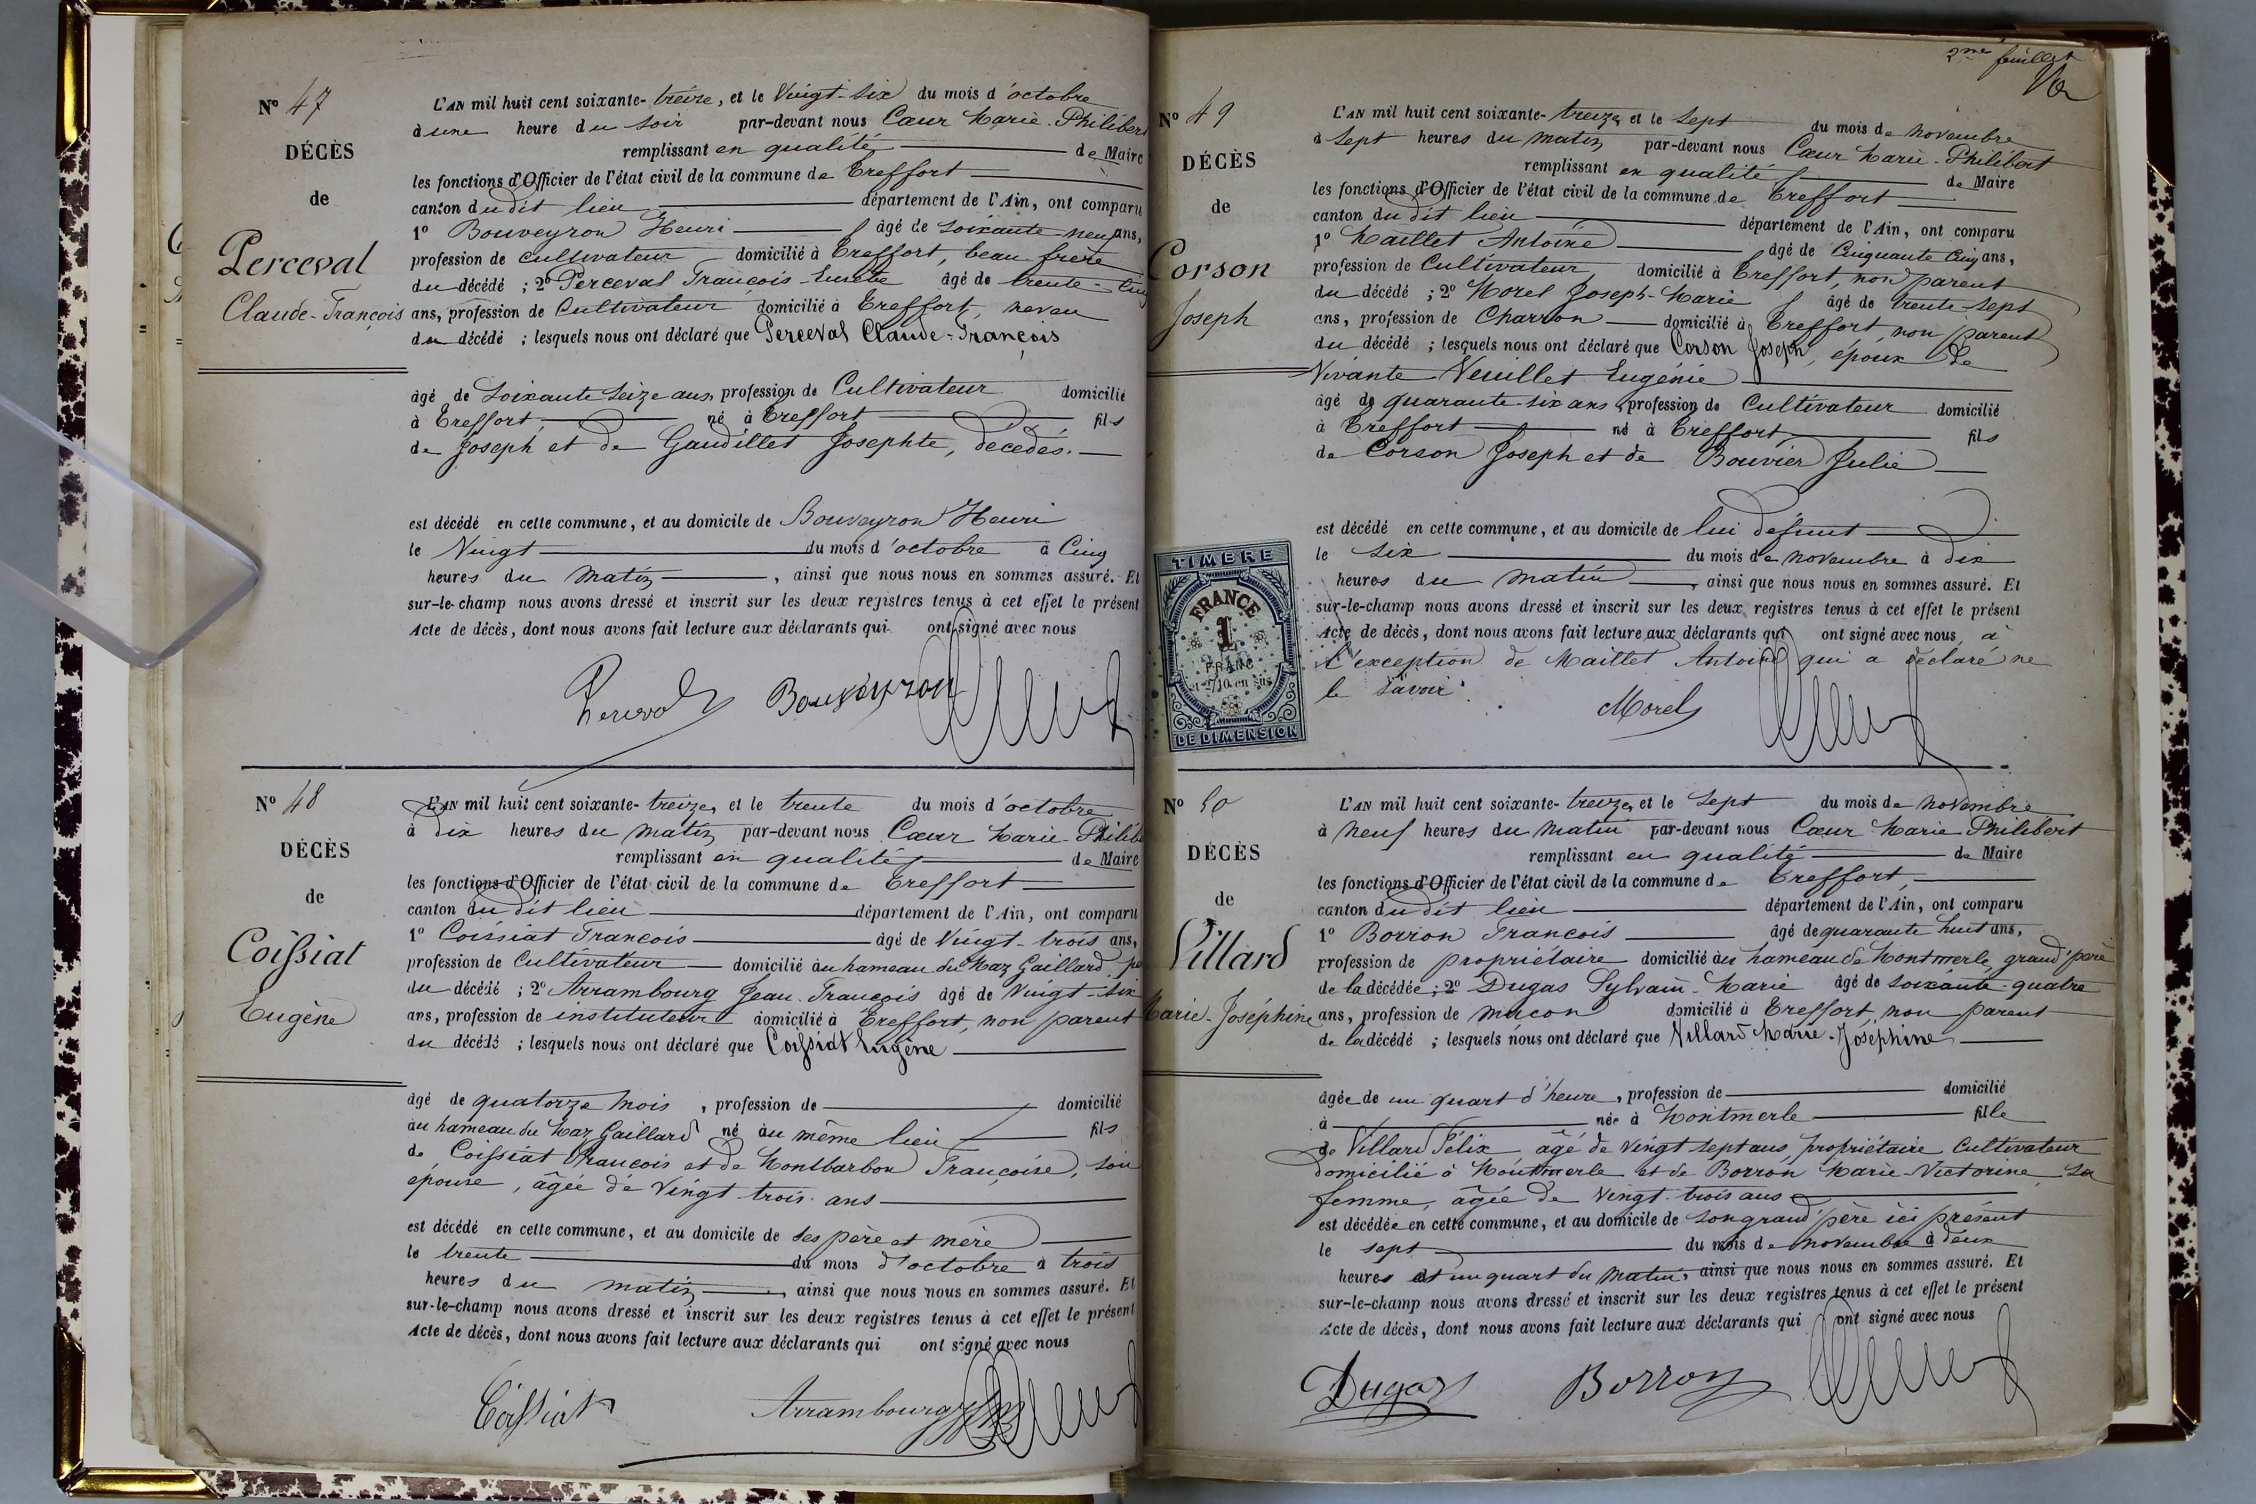 Nº 47
DÉCÈS
de
Perceval
Claude-François
L'AN mil huit cent soixante-treize, et le Vingt-six du mois d'octobre
à une heure du soir par-devant nous Cœur Marie-Philibert
remplissant en qualité de Maire
les fonctions d'Officier de l'état civil de la commune de Treffort
canton du dit lieu département de l'Ain, ont comparu
1º Bouveyron Henri âgé de soixante-neuf ans,
profession de cultivateur domicilié à Treffort, beau frère
du décédé ; 2º Perceval François-Eusèbe âgé de trente-cinq
ans, profession de Cultivateur domicilié à Treffort, neveu
du décédé ; lesquels nous ont déclaré que Perceval Claude-François
âgé de soixante seize ans, profession de Cultivateur domicilié
à Treffort, né à Treffort fils
de Joseph et de Gaudillet Josephte, décédés.
est décédé en cette commune, et au domicile de Bouveyron Henri
le Vingt du mois d'octobre à Cinq
heures du matin, ainsi que nous nous en sommes assuré. Et
sur-le-champ nous avons dressé et inscrit sur les deux registres tenus à cet effet le présent
Acte de décès, dont nous avons fait lecture aux déclarants qui ont signé avec nous
Perceval Bouveyron
Nº 48
DÉCÈS
de
Coissiat
Eugène
L'AN mil huit cent soixante-treize, et le trente du mois d'octobre
à Dix heures du matin par-devant nous Cœur Marie-Philibe
remplissant en qualité de Maire
les fonctions d'Officier de l'état civil de la commune de Treffort
canton du dit lieu département de l'Ain, ont comparu
1º Coissiat François âgé de Vingt-trois ans,
profession de Cultivateur domicilié au hameau du Maz Gaillard, pè
du décédé ; 2º Arrambourg Jean-François âgé de Vingt-six
ans, profession de instituteur domicilié à Treffort, non parent
du décédé ; lesquels nous ont déclaré que Coissiat Eugène
âgé de quatorze mois, profession de domicilié
au hameau du Maz Gaillard né au même lieu fils
de Coissiat François et de Montbarbon Françoise, son
épouse, âgée de Vingt-trois ans
est décédé en cette commune, et au domicile de ses père et mère
le trente du mois d'octobre à trois
heures du matin, ainsi que nous nous en sommes assuré. Et
sur-le-champ nous avons dressé et inscrit sur les deux registres tenus à cet effet le présent
Acte de décès, dont nous avons fait lecture aux déclarants qui ont signé avec nous
Coissiat Arrambourg
2me feuillet
Nº 49
DÉCÈS
de
Corson
Joseph
L'AN mil huit cent soixante-treize, et le sept du mois de novembre
à sept heures du matin par-devant nous Cœur Marie-Philibert
remplissant en qualité de Maire
les fonctions d'Officier de l'état civil de la commune de Treffort
canton du dit lieu département de l'Ain, ont comparu
1º Maillet Antoine âgé de Cinquante Cinq ans,
profession de Cultivateur, domicilié à Treffort, non parent
du décédé ; 2º Morel Joseph-Marie âgé de trente-sept
ans, profession de Charron domicilié à Treffort, non parent
du décédé ; lesquels nous ont déclaré que Corson Joseph, époux de
Vivante Veuillet Eugénie
âgé de quarante-six ans, profession de Cultivateur domicilié
à Treffort né à Treffort, fils
de Corson Joseph et de Bouvier Julie
est décédé en cette commune, et au domicile de lui défunt
le six du mois de novembre à dix
heures du matin, ainsi que nous nous en sommes assuré. Et
sur-le-champ nous avons dressé et inscrit sur les deux registres tenus à cet effet le présent
Acte de décès, dont nous avons fait lecture aux déclarants qui ont signé avec nous, à
l'exception de Maillet Antoine qui a déclaré ne
le savoir.
Morel
TIMBRE
FRANCE
1
FRANC
et 2/10 en sus
DE DIMENSION
Nº 50
DÉCÈS
de
Villard
Marie-Joséphine
L'AN mil huit cent soixante-treize, et le sept du mois de novembre
à neuf heures du matin par-devant nous Cœur Marie Philibert
remplissant en qualité de Maire
les fonctions d'Officier de l'état civil de la commune de Treffort,
canton du dit lieu département de l'Ain, ont comparu
1º Borron François âgé de quarante huit ans,
profession de propriétaire domicilié au hameau de Montmerle, grand'père
de la décédée ; 2º Dugas Sylvain-Marie âgé de soixante-quatre
ans, profession de maçon domicilié à Treffort, non parent
de la décédé ; lesquels nous ont déclaré que Villard Marie-Joséphine
âgée de un quart d'heure, profession de domicilié
à née à Montmerle fille
de Villard Félix, âgé de vingt sept ans, propriétaire Cultivateur
domicilié à Montmerle et de Borron Marie-Victorine sa
femme, âgée de vingt-trois ans
est décédée en cette commune, et au domicile de son grand'père ici présent
le sept du mois de novembre à deux
heures et un quart du matin, ainsi que nous nous en sommes assuré. Et
sur-le-champ nous avons dressé et inscrit sur les deux registres tenus à cet effet le présent
Acte de décès, dont nous avons fait lecture aux déclarants qui ont signé avec nous
Dugas Borron